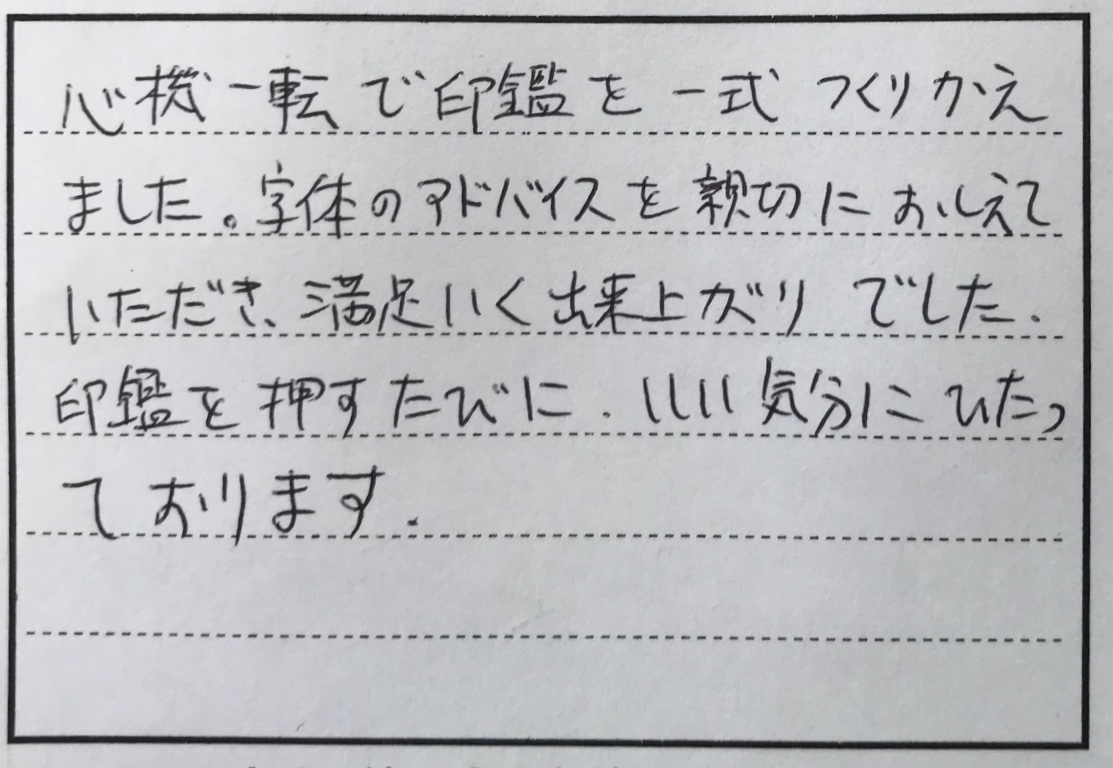 心機一転で印鑑を一式つくりかえ
ました。字体のアドバイスを親切におしえて
いただき、満足いく出来上がりでした.
印鑑を押すたびに.いい気分にひたっ
ております.